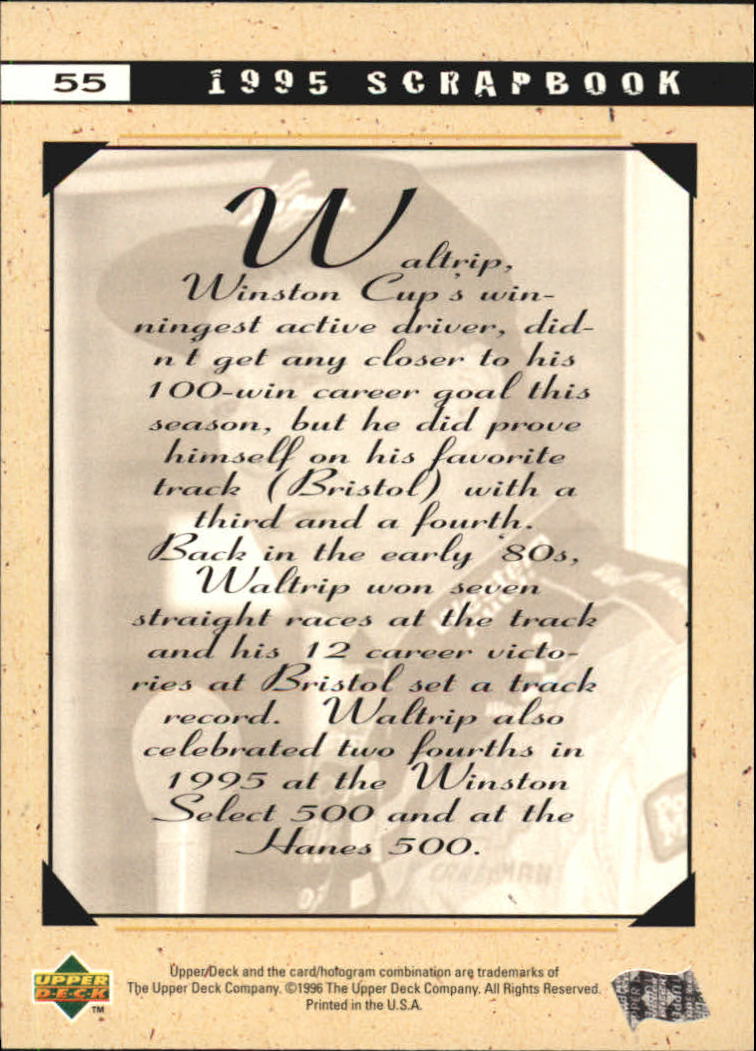 55 1995 SCRAPBOOK
Waltrip,
Winston Cup's win-
ningest active driver, did-
n't get any closer to his
100-win career goal this
season, but he did prove
himself on his favorite
track (Bristol) with a
third and a fourth.
Back in the early '80s,
Waltrip won seven
straight races at the track
and his 12 career victo-
ries at Bristol set a track
record. Waltrip also
celebrated two fourths in
1995 at the Winston
Select 500 and at the
Hanes 500.
UPPER
D·E·C·K
TM
Upper/Deck and the card/hologram combination are trademarks of
The Upper Deck Company. ©1996 The Upper Deck Company. All Rights Reserved.
Printed in the U.S.A.